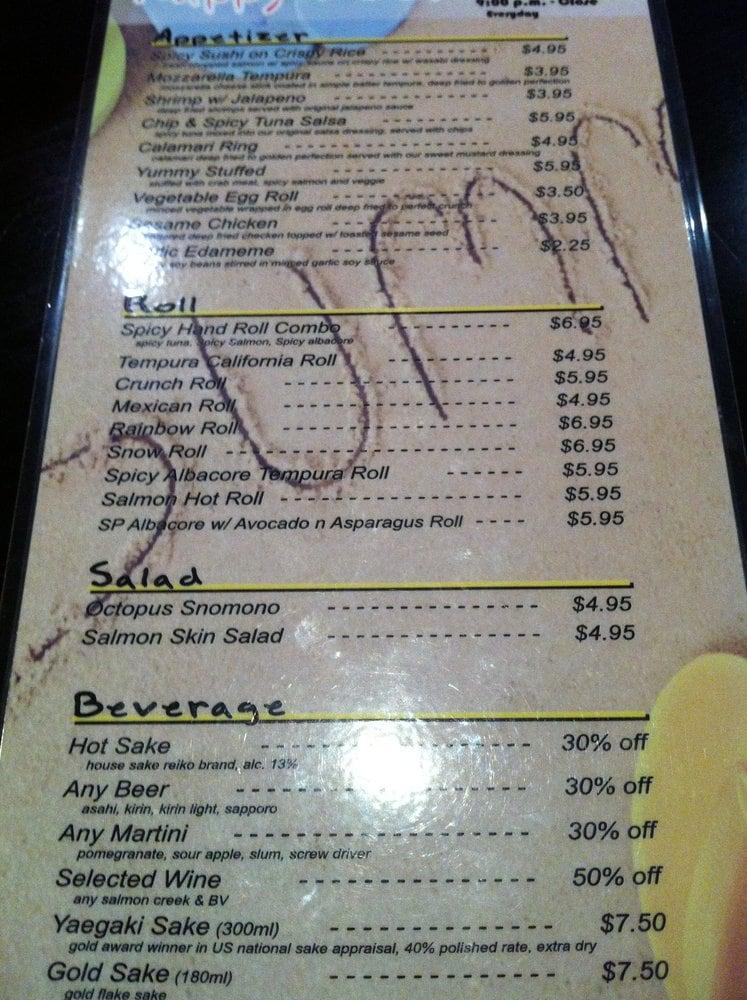 Happy
9:00 p.m. - Close
Everyday
Appetizer
Spicy Sushi on Crispy Rice - - - - - - - - - - $4.95
Mozzarella Tempura - - - - - - - - - - $3.95
mozzarella cheese stick coated in simple batter tempura, deep fried to golden perfection
Shrimp w/ Jalapeno - - - - - - - - - - $3.95
deep fried shrimps served with original jalapeno sauce
Chip & Spicy Tuna Salsa - - - - - - - - - - $5.95
spicy tuna mixed into our original salsa dressing, served with chips
Calamari Ring - - - - - - - - - - $4.95
calamari deep fried to golden perfection served with our sweet mustard dressing
Yummy Stuffed - - - - - - - - - - $5.95
stuffed with crab meat, spicy salmon and veggie
Vegetable Egg Roll - - - - - - - - - - $3.50
minced vegetable wrapped in egg roll deep fried to perfect crunch
Sesame Chicken - - - - - - - - - - $3.95
deep fried checken topped w/ toasted sesame seed
Edameme - - - - - - - - - - $2.25
soy beans stirred in minced garlic soy sauce
Roll
Spicy Hand Roll Combo - - - - - - - - - $6.95
spicy tuna, Spicy Salmon, Spicy albacore
Tempura California Roll - - - - - - - - - $4.95
Crunch Roll - - - - - - - - - - - - - - - - $5.95
Mexican Roll - - - - - - - - - - - - - - - - $4.95
Rainbow Roll - - - - - - - - - - - - - - - - $6.95
Snow Roll - - - - - - - - - - - - - - - - - - - - $6.95
Spicy Albacore Tempura Roll - - - - - $5.95
Salmon Hot Roll - - - - - - - - - - - - - - - - $5.95
SP Albacore w/ Avocado n Asparagus Roll - - - - $5.95
Salad
Octopus Snomono - - - - - - - - - - - - - - $4.95
Salmon Skin Salad - - - - - - - - - - - - - - $4.95
Beverage
Hot Sake - - - - - - - - - - - - - - - - - 30% off
house sake reiko brand, alc. 13%
Any Beer - - - - - - - - - - - - - - - - - - 30% off
asahi, kirin, kirin light, sapporo
Any Martini - - - - - - - - - - - - - - - - - - 30% off
pomegranate, sour apple, slum, screw driver
Selected Wine - - - - - - - - - - - - - - 50% off
any salmon creek & BV
Yaegaki Sake (300ml) - - - - - - - - - - - - - $7.50
gold award winner in US national sake appraisal, 40% polished rate, extra dry
Gold Sake (180ml) - - - - - - - - - - - - - $7.50
gold flake sake